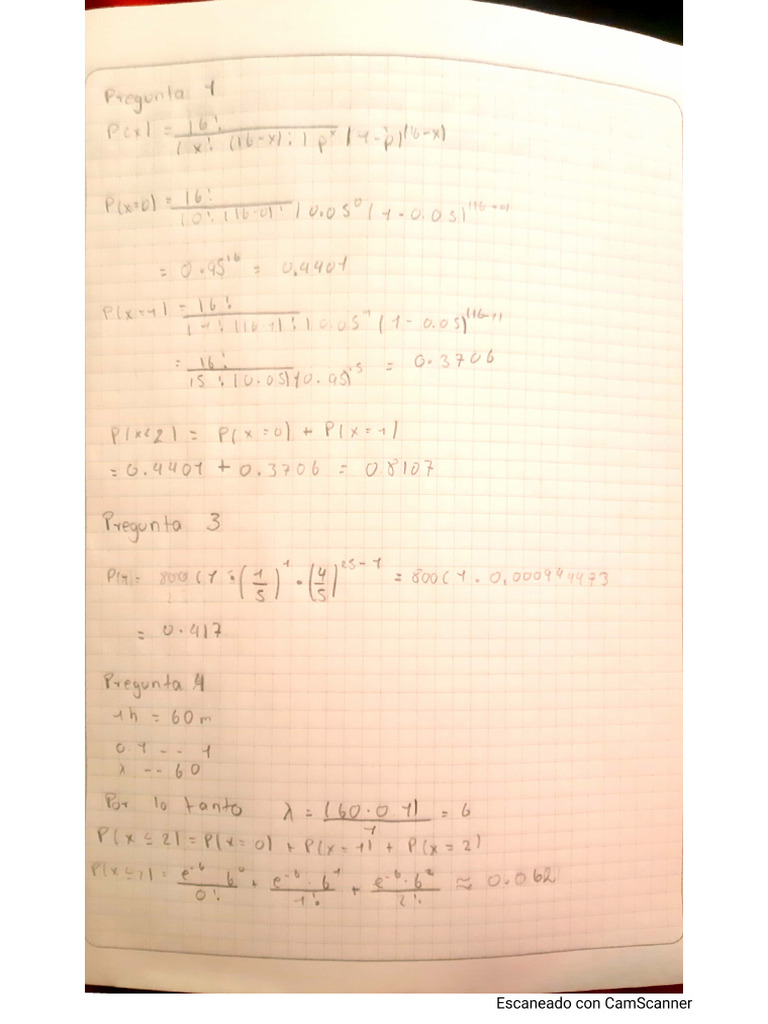 Pregunta 1
P(x) = 16! / (x! (16-x)!) p^x (1-p)^(16-x)
P(x=0) = 16! / (0! (16-0)!) 0.05^0 (1-0.05)^(16-0)
= 0.95^16 = 0.4401
P(x=1) = 16! / (1! (16-1)!) 0.05^1 (1-0.05)^(16-1)
= 16! / 15! (0.05)(0.95)^15 = 0.3706
P(x<2) = P(x=0) + P(x=1)
= 0.4401 + 0.3706 = 0.8107
Pregunta 3
(1/5)^1 · (4/5)^25-1 = 800(1 ·
= 0.417
Pregunta 4
1h = 60m
0.1 -- 1
λ -- 60
Por lo tanto λ = (60·0.1) / 1 = 6
P(x≤2) = P(x=0) + P(x=1) + P(x=2)
= e^-6 6^0 / 0! + e^-6·6^1 / 1! + e^-6·6^2 / 2! ≈ 0.062
Escaneado con CamScanner